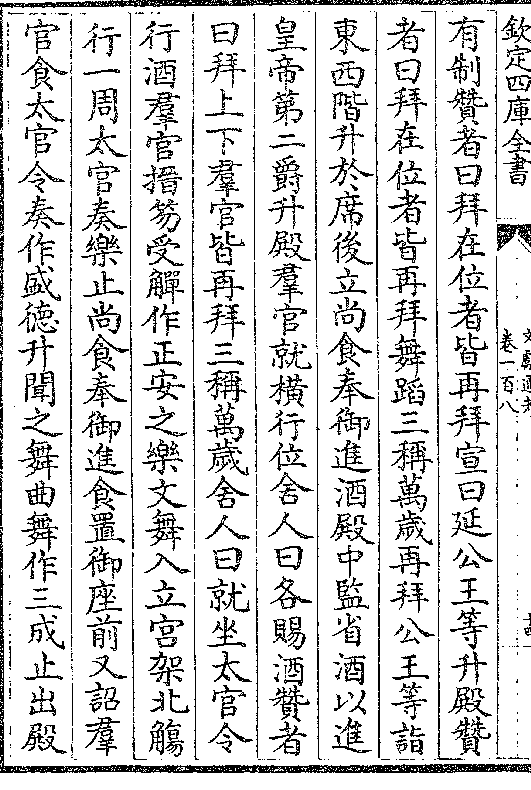 欽定四庫全書
卷一百八
有制贊者曰拜在位者皆再拜宣曰延公王等升殿贊
者曰拜在位者皆再拜舞蹈三稱萬歲再拜公王等詣
東西階升於席後立尚食奉御進酒殿中監省酒以進
皇帝第二爵升殿羣官就横行位舍人曰各賜酒贊者
曰拜上下羣官皆再拜三稱萬歲舍人曰就坐太官令
行酒羣官搢笏受觶作正安之樂文舞入立宫架北觴
行一周太官奏樂止尚食奉御進食置御座前又詔羣
官食太官令奏作盛德升聞之舞曲舞作三成止出殿